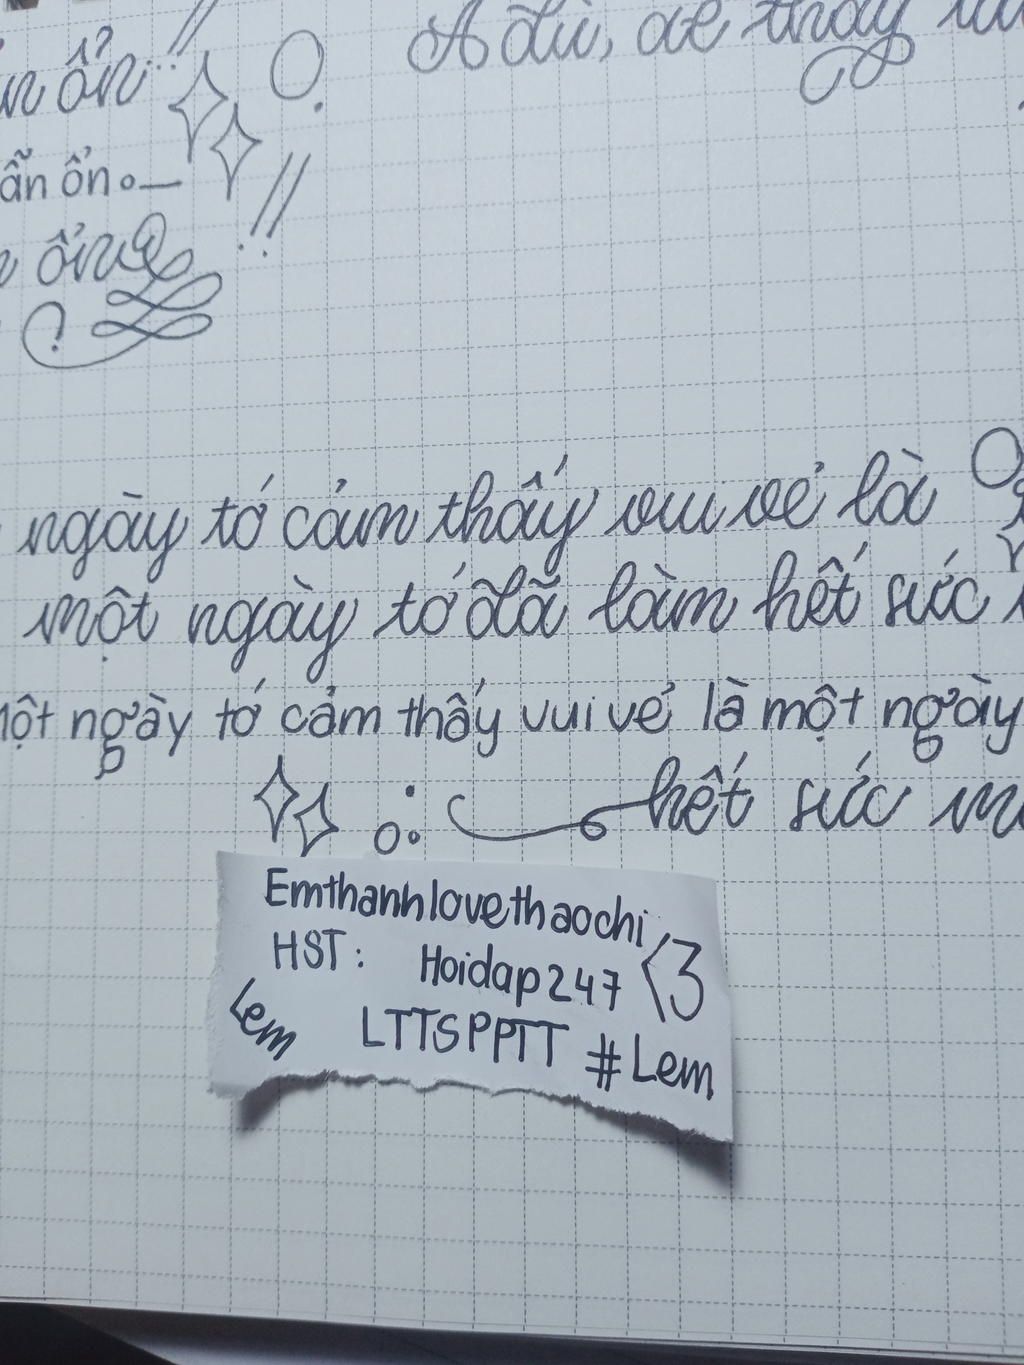 ổn
A đù, dễ thấy
vẫn ổn.
ổn
ngày tớ cảm thấy vui vẻ là
một ngày tớ đã làm hết sức
một ngày tớ cảm thấy vui vẻ là một ngày
hết sức
Emthanhlovethaochi
HST: Hoidap247 <3
Lem LTTSPPTT #Lem